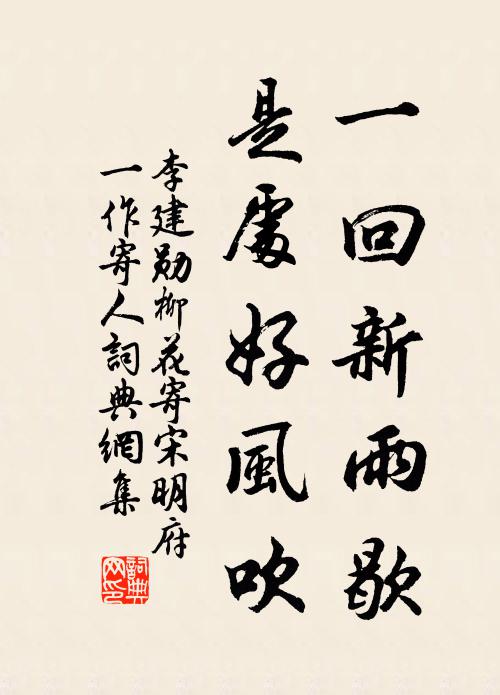 一回新雨歇
是處好風吹
李建勛柳花寄宋明府
一作寄人詞典網集
詞典
网印